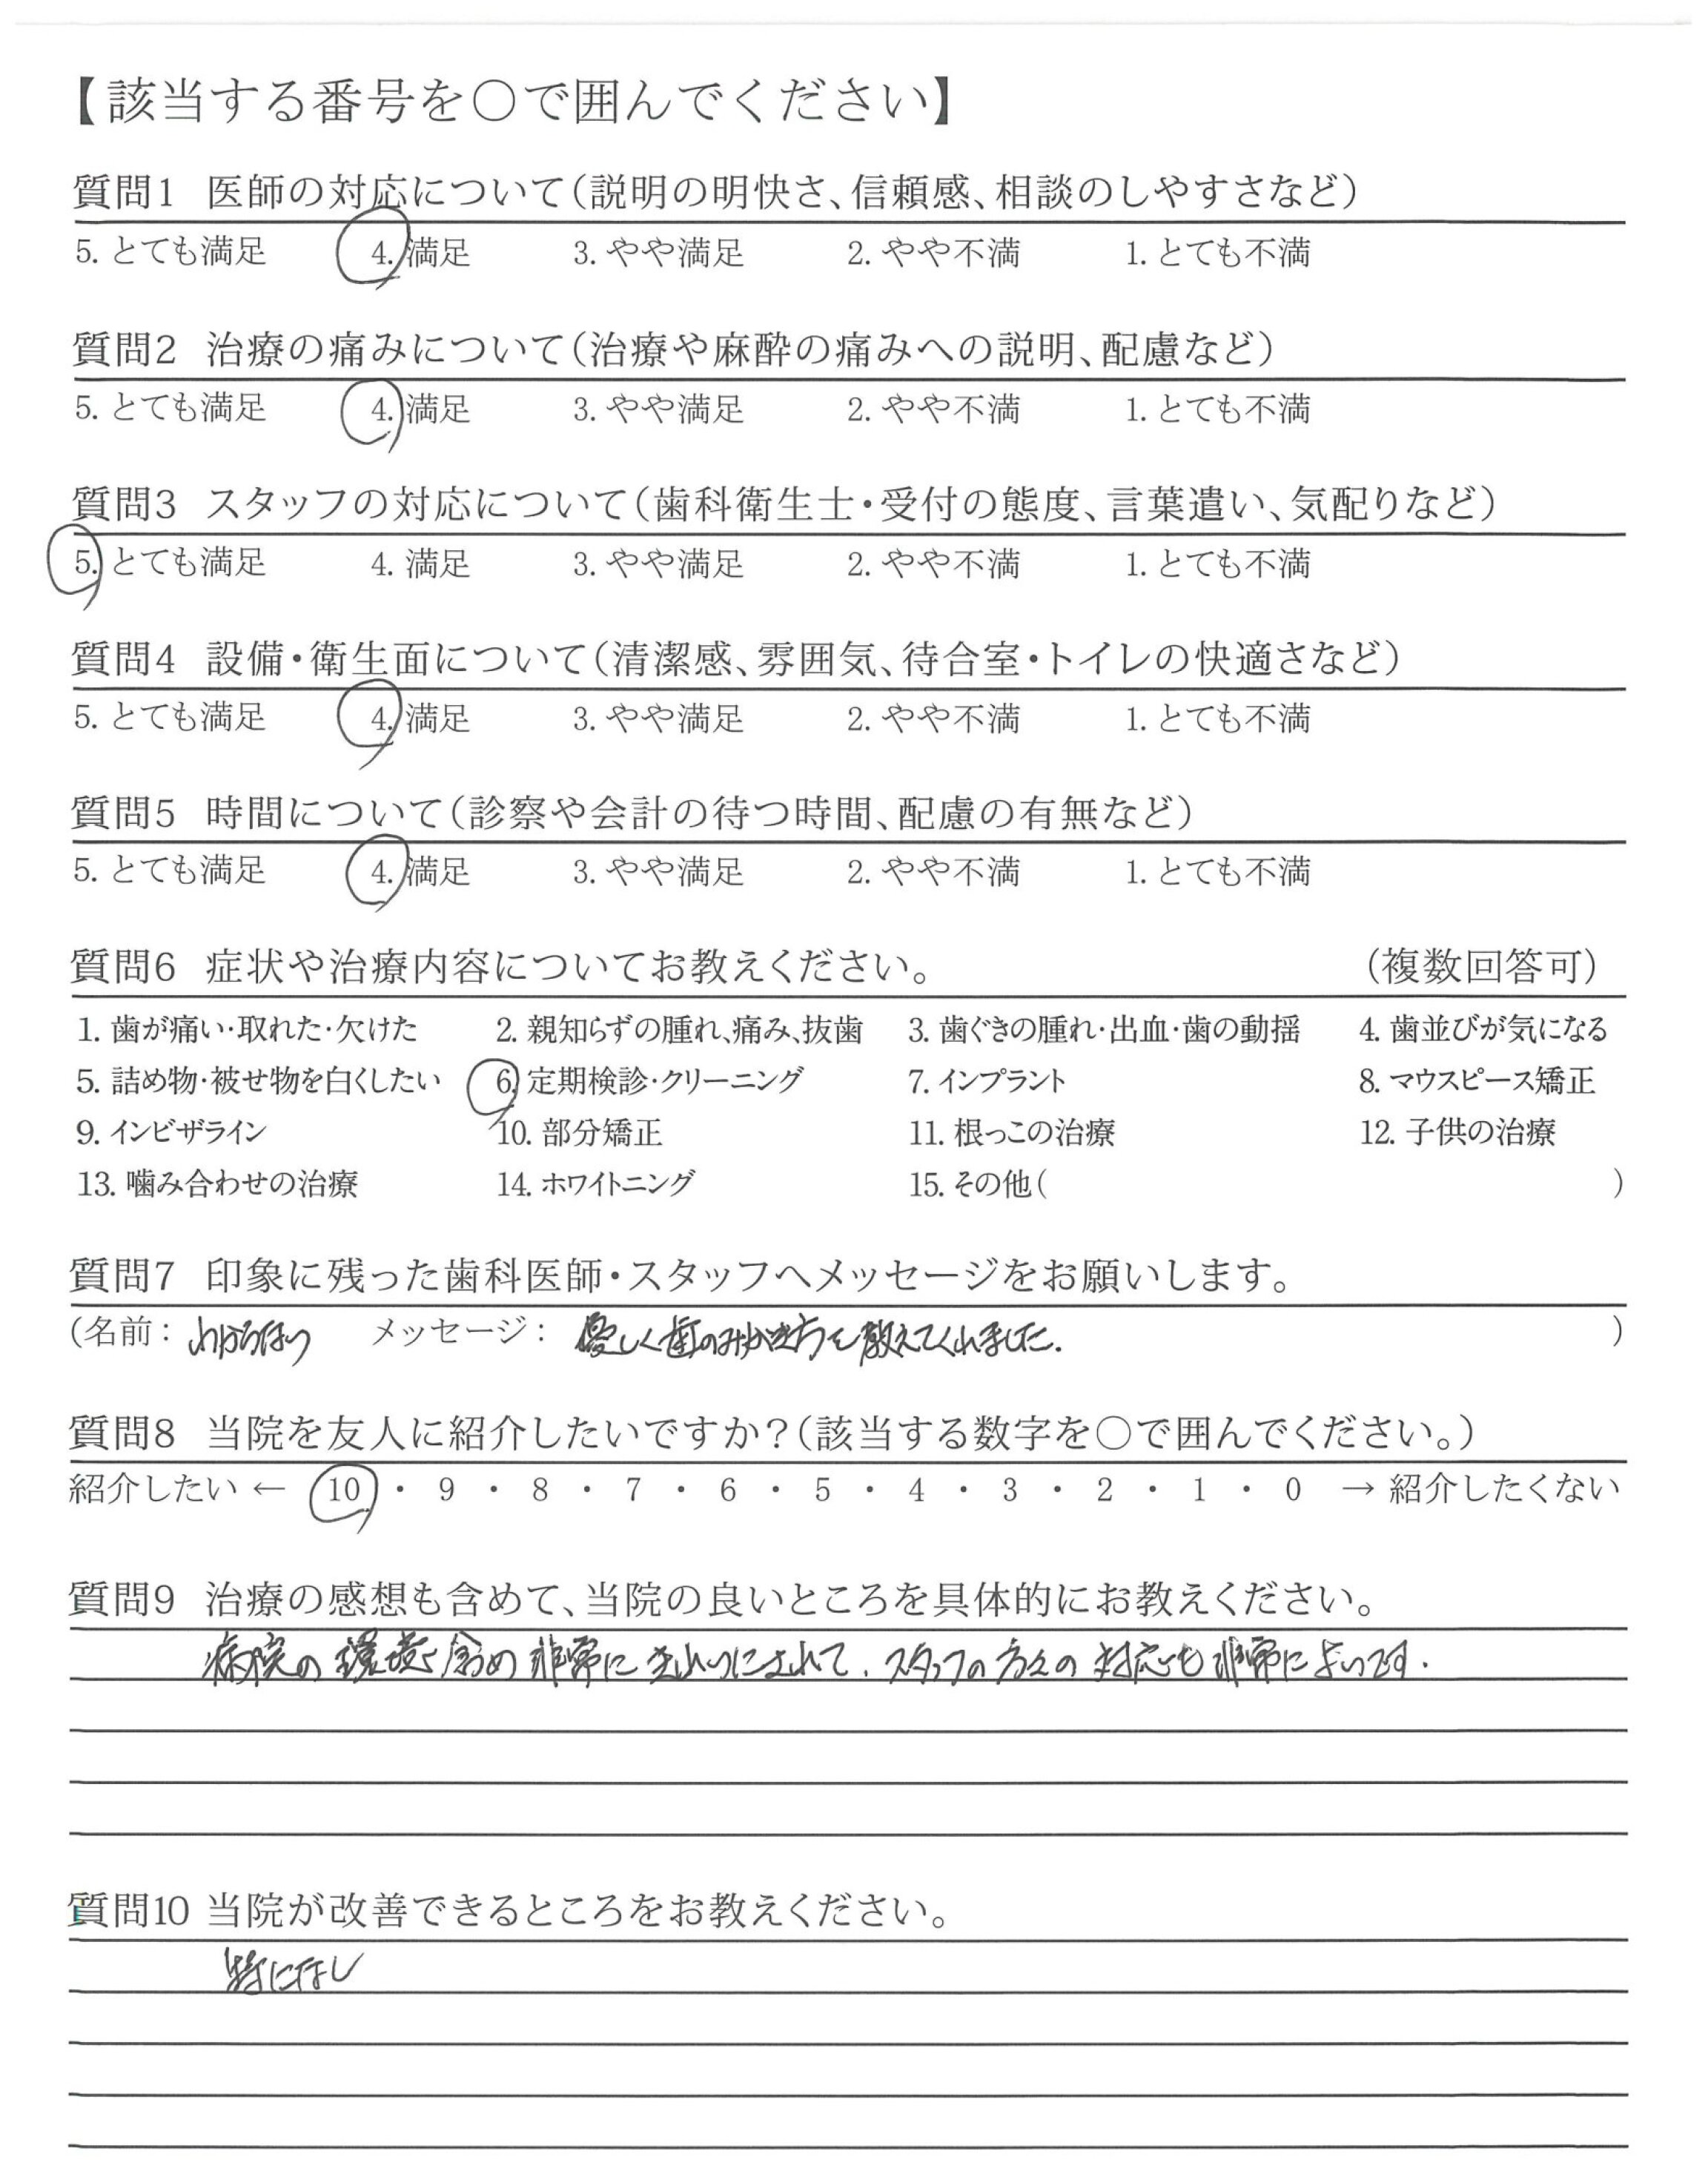 【該当する番号を○で囲んでください】
質問1 医師の対応について(説明の明快さ、信頼感、相談のしやすさなど)
5. とても満足 4. 満足 3. やや満足 2. やや不満 1. とても不満
質問2 治療の痛みについて(治療や麻酔の痛みへの説明、配慮など)
5. とても満足 4. 満足 3. やや満足 2. やや不満 1. とても不満
質問3 スタッフの対応について(歯科衛生士・受付の態度、言葉遣い、気配りなど)
5. とても満足 4. 満足 3. やや満足 2. やや不満 1. とても不満
質問4 設備・衛生面について(清潔感、雰囲気、待合室・トイレの快適さなど)
5. とても満足 4. 満足 3. やや満足 2. やや不満 1. とても不満
質問5 時間について(診察や会計の待つ時間、配慮の有無など)
5. とても満足 4. 満足 3. やや満足 2. やや不満 1. とても不満
質問6 症状や治療内容についてお教えください。 (複数回答可)
1. 歯が痛い・取れた・欠けた 2. 親知らずの腫れ、痛み、抜歯 3. 歯ぐきの腫れ・出血・歯の動揺 4. 歯並びが気になる
5. 詰め物・被せ物を白くしたい 6. 定期検診・クリーニング 7. インプラント 8. マウスピース矯正
9. インビザライン 10. 部分矯正 11. 根っこの治療 12. 子供の治療
13. 噛み合わせの治療 14. ホワイトニング 15. その他( )
質問7 印象に残った歯科医師・スタッフへメッセージをお願いします。
(名前: わからない メッセージ: 優しく歯のみがき方を教えてくれました. )
質問8 当院を友人に紹介したいですか?(該当する数字を○で囲んでください。)
紹介したい ← 10 ・ 9 ・ 8 ・ 7 ・ 6 ・ 5 ・ 4 ・ 3 ・ 2 ・ 1 ・ 0 → 紹介したくない
質問9 治療の感想も含めて、当院の良いところを具体的にお教えください。
病院の環境含め非常にきれいにされて、スタッフの方々の対応も非常によいです.
質問10 当院が改善できるところをお教えください。
特になし